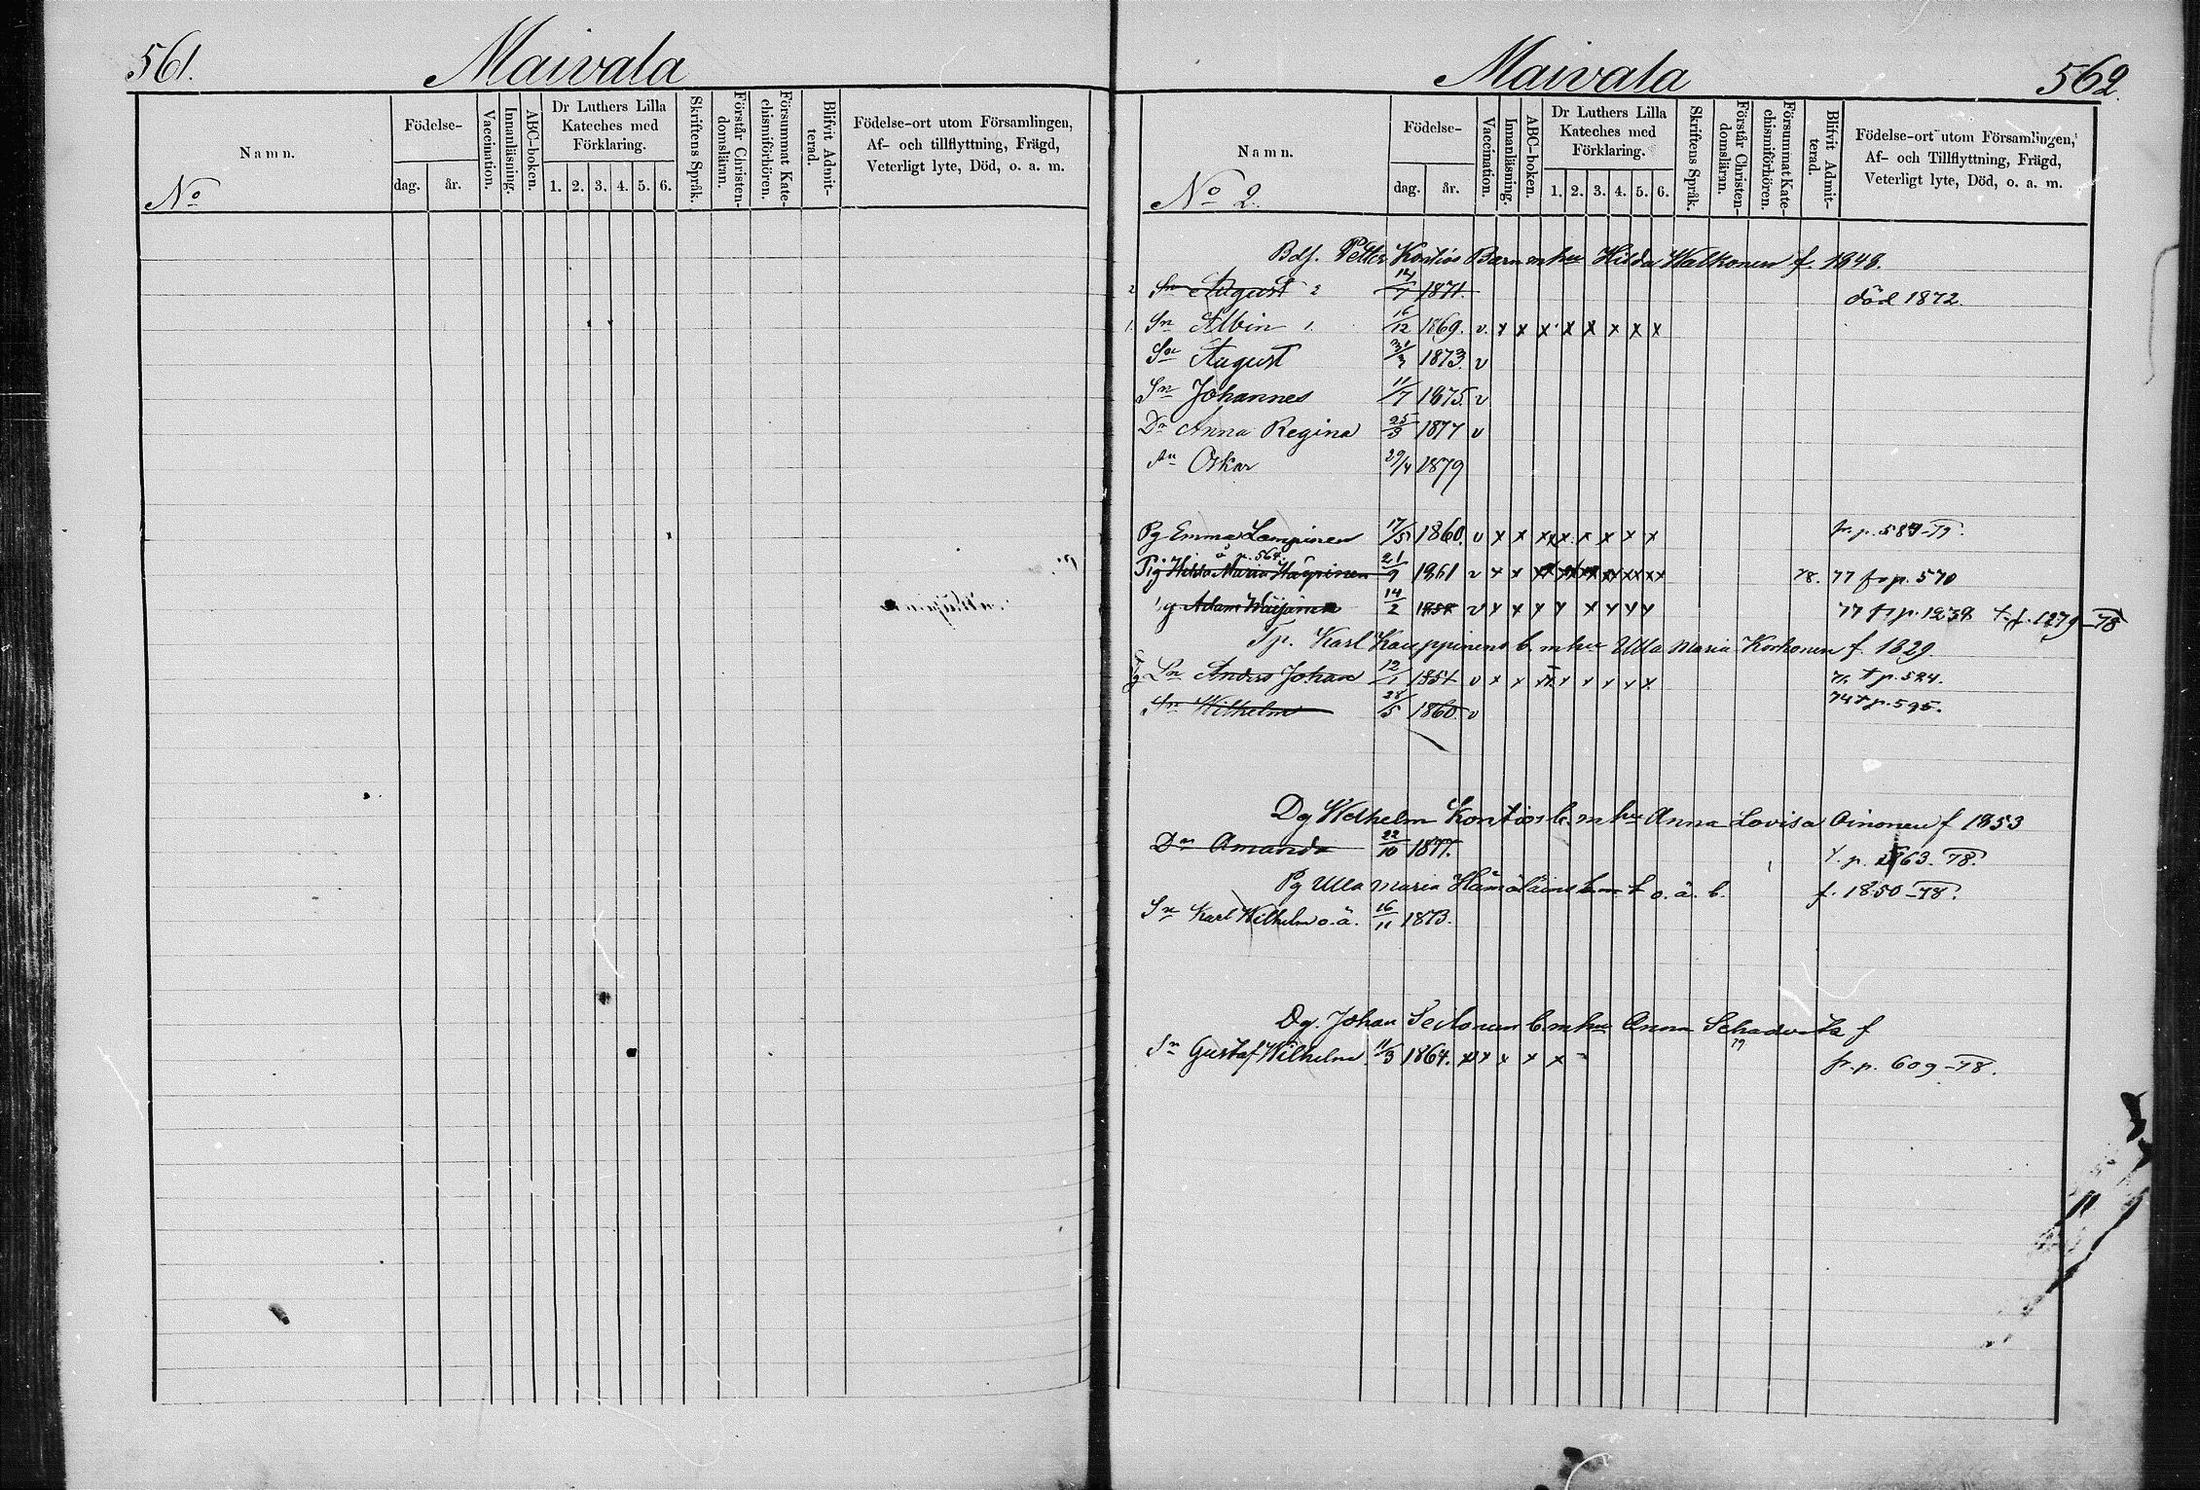 561. Maivala
Namn.
No
Födelse-
dag. år.
Vaccination.
Innanläsning.
ABC-boken.
Dr Luthers Lilla
Kateches med
Förklaring.
1. 2. 3. 4. 5. 6.
Skriftens Språk.
Förstår Christen-
domsläran.
Försummat Kate-
chismiförhören.
Blifvit Admit-
terad.
Födelse-ort utom Församlingen,
Af- och tillflyttning, Frägd,
Veterligt lyte, Död, o. a. m.
Maivala 562.
Namn.
No 2.
Födelse-
dag. år.
Vaccination.
Innanläsning.
ABC-boken.
Dr Luthers Lilla
Kateches med
Förklaring.
1. 2. 3. 4. 5. 6.
Skriftens Språk.
Förstår Christen-
domsläran.
Försummat Kate-
chismiförhören.
Blifvit Admit-
terad.
Födelse-ort utom Församlingen,
Af- och Tillflyttning, Frägd,
Veterligt lyte, Död, o. a. m.
Petter Kontiös Barn m hu Hilda Walkonen f. 1848.
2 Sn August 2 1871. död 1872.
1. Sn Albin 1. 16/12 1869. v. x x x x x x x x
Sn August 31/3 1873. v
Sn Johannes 11/7 1875. v
Dr Anna Regina 25/3 1877 v
Sn Oskar 29/4 1879
Pg Emma Lampinen 17/5 1860. v x x x x x x x x
å p. 564.
Pig Hilda Maria 21/9 1861 v x x 78. 77 fr p. 570
Adam 14/2 v x x x x x x x x
Karl Kauppinens b. m hu Ulla Maria Korhonen f. 1829.
Sn Anders Johan 12/1 v x x
Sn Wilhelm 28/5 1860. v
Dg Wilhelm Kontiös b. m hu Anna Lovisa Oinonen f 1853
Dr Amanda 22/10 1877.
Pg Ulla Maria o. ä. b. f. 1850-78.
Sn Karl Wilhelm o. ä. 16/11 1873.
Dg. Johan b. m hu Anna f
Sn Gustaf Wilhelm 11/3 1864. fr. p. 609-78.